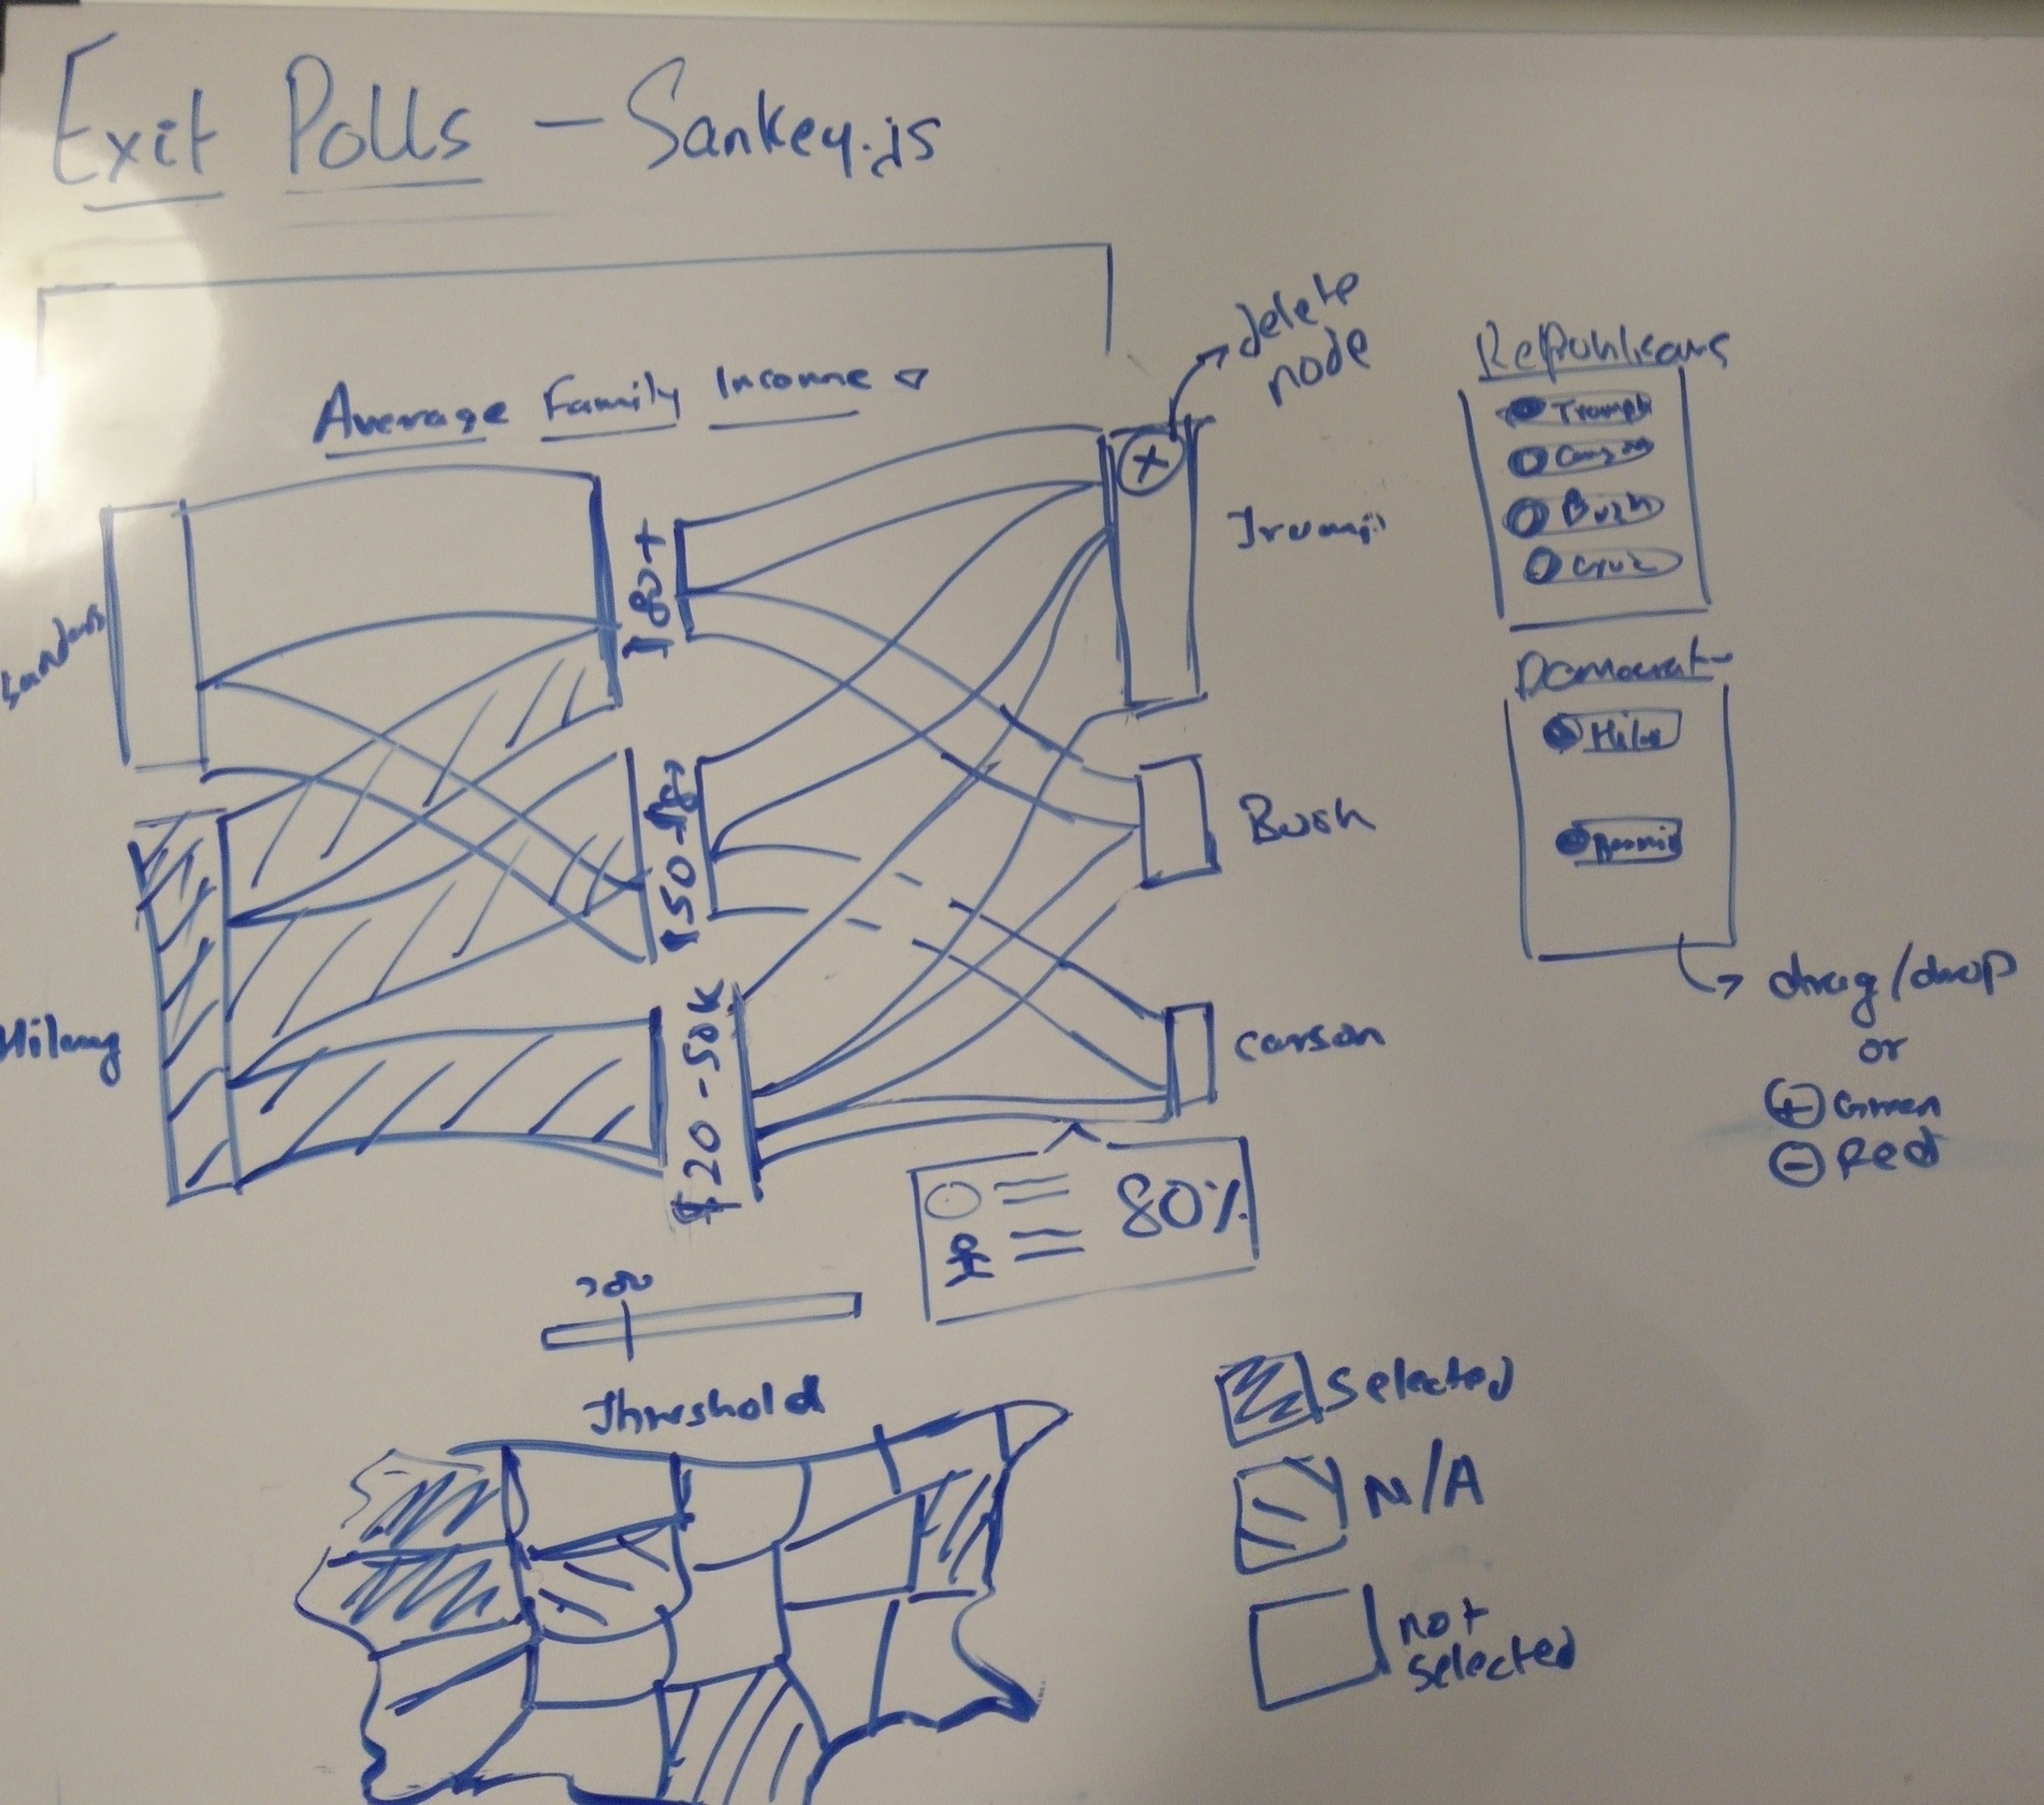 Exit Polls - Sankey.js
Average Family Income
delete
node
Sanders
$80+
Trump
$50-$80
Bush
Hilary
$20-50K
Carson
80%
Threshold
Republicans
Trump
Carson
Bush
Cruz
Democrat
Hilary
drag/drop
or
+ Green
- Red
Selected
N/A
not
selected